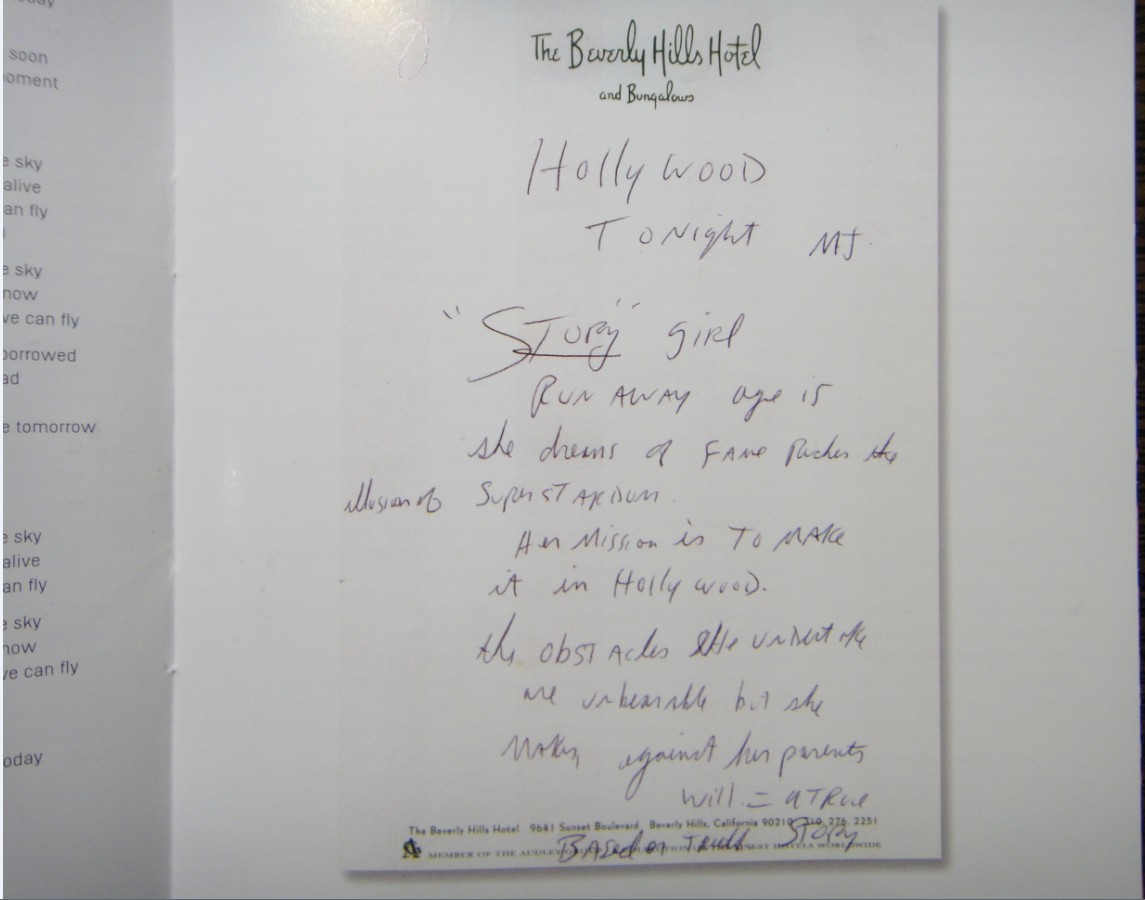 oday
soon
oment
e sky
alive
an fly
e sky
now
ve can fly
borrowed
ad
e tomorrow
e sky
alive
an fly
e sky
now
ve can fly
oday
The Beverly Hills Hotel
and Bungalows
HollyWOOD
TONight MJ.
"STORY" giRl
RUNAWAY age 15
she dreams of FAME the
illusion of SupeRSTARDUM.
Her Mission is TO MAKe
it in HollywooD.
the obSTAcles SHe
are unbearable but she
MAKes against her parents
will = a TRue
STORy
The Beverly Hills Hotel 9641 Sunset Boulevard, Beverly Hills, California 90210 310 276 2251
BASed on
MEMBER OF THE WORLDWIDE